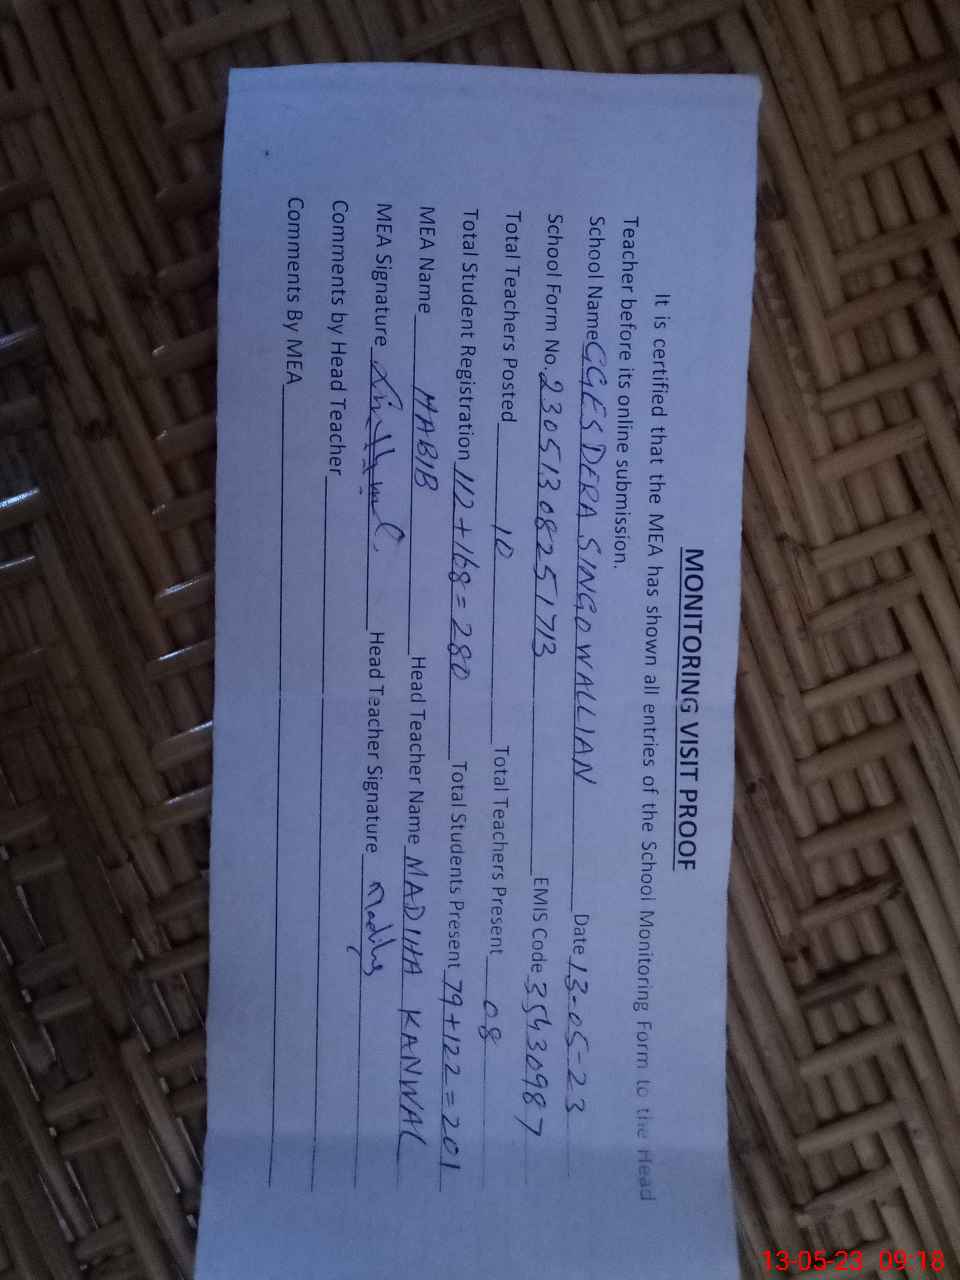 MONITORING VISIT PROOF
It is certified that the MEA has shown all entries of the School Monitoring Form to the Head
Teacher before its online submission.
School Name GGES DERA SINGOWALLIAN Date 13-05-23
School Form No. 23051308251713 EMIS Code 35430987
Total Teachers Posted 10 Total Teachers Present 08
Total Student Registration 112+168=280 Total Students Present 79+122=201
MEA Name HABIB Head Teacher Name MADIHA KANWAL
MEA Signature Head Teacher Signature Madiha
Comments by Head Teacher
Comments By MEA
13-05-23 09:18